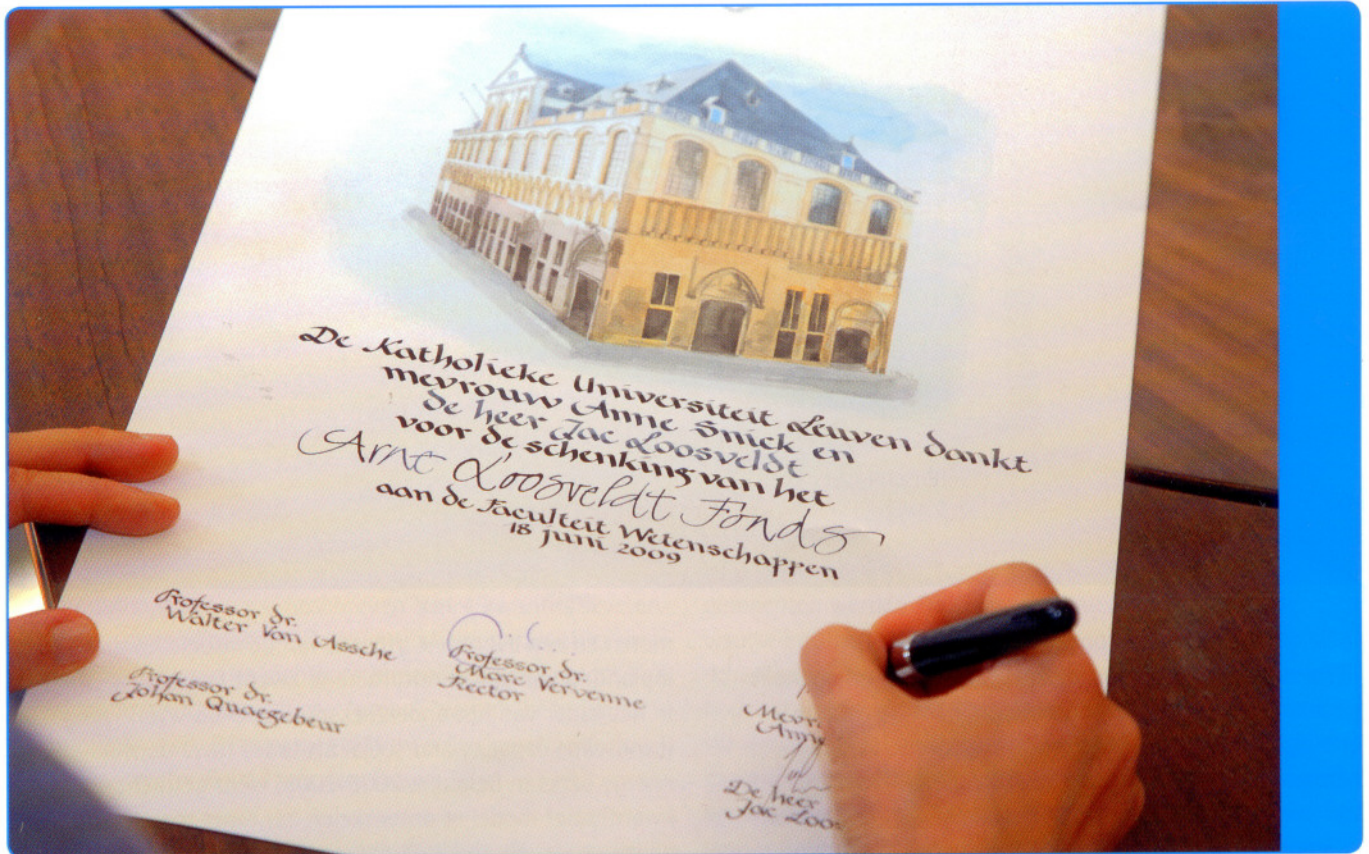 De Katholieke Universiteit Leuven dankt
mevrouw Anne Sniek en
de heer Jac Loosveldt
voor de schenking van het
Arne Loosveldt Fonds
aan de Faculteit Wetenschappen
18 juni 2009
Professor dr.
Walter Van Assche
Professor dr.
Marc Vervenne
Rector
Professor dr.
Johan Quaegebeur
Anne
De heer
Jac